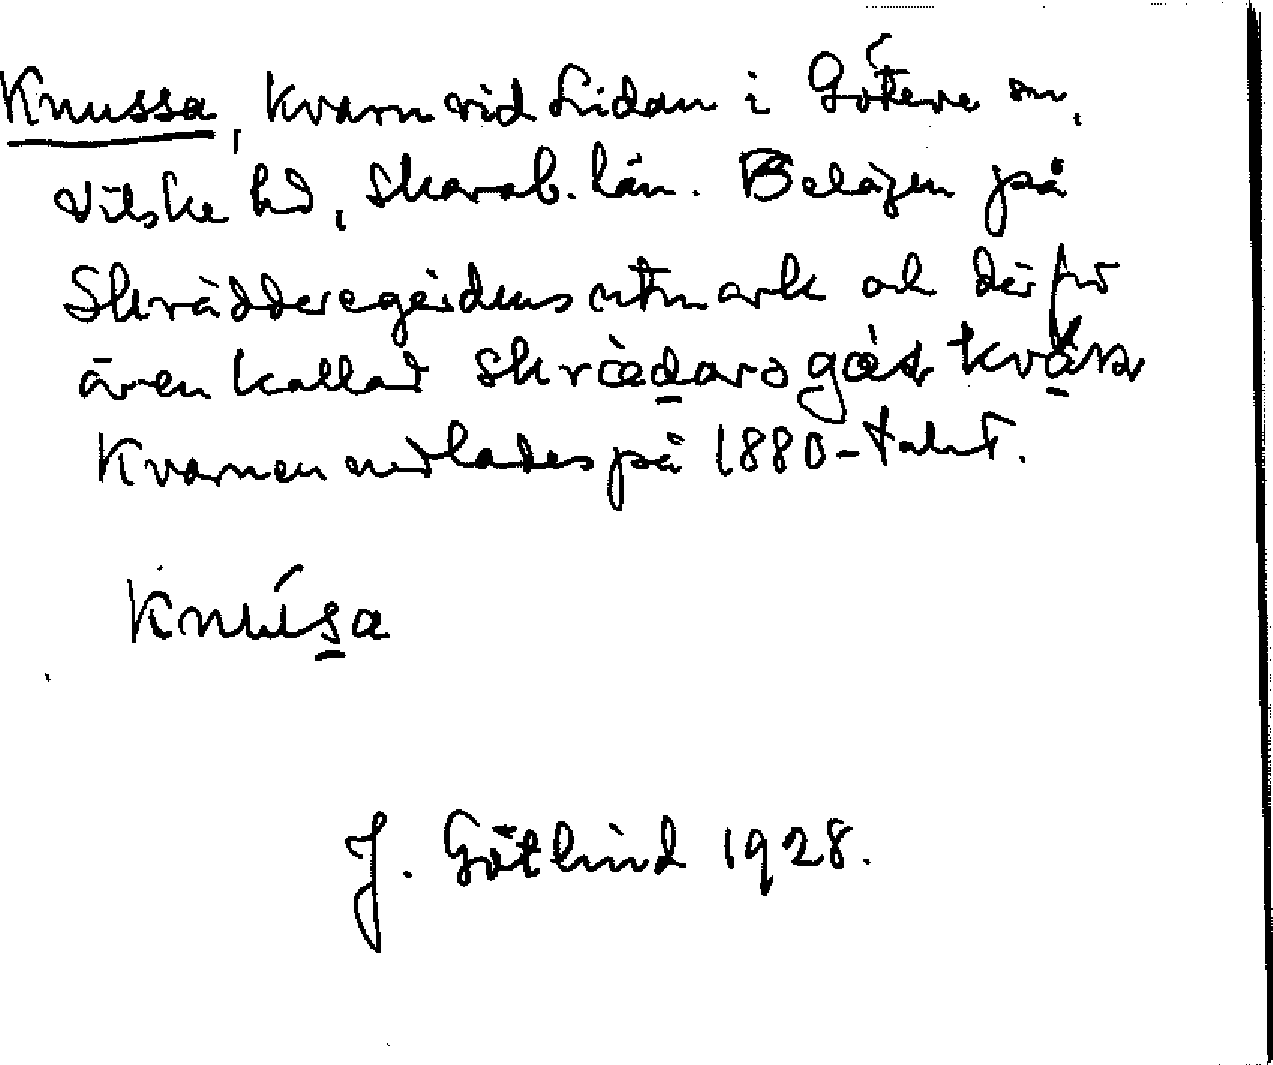 Knussa, kvarn vid Lidan i Göteve sn,
Vilske hd, Skarab. län. Belägen på
Skräddaregårdens utmark och därför
även kallad
Kvarnen nedlades på 1880-talet.
J. Götlind 1928.